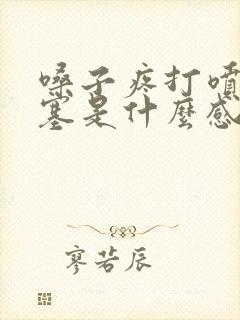 嗓子疼打噴
塞是什麼感
寥若辰